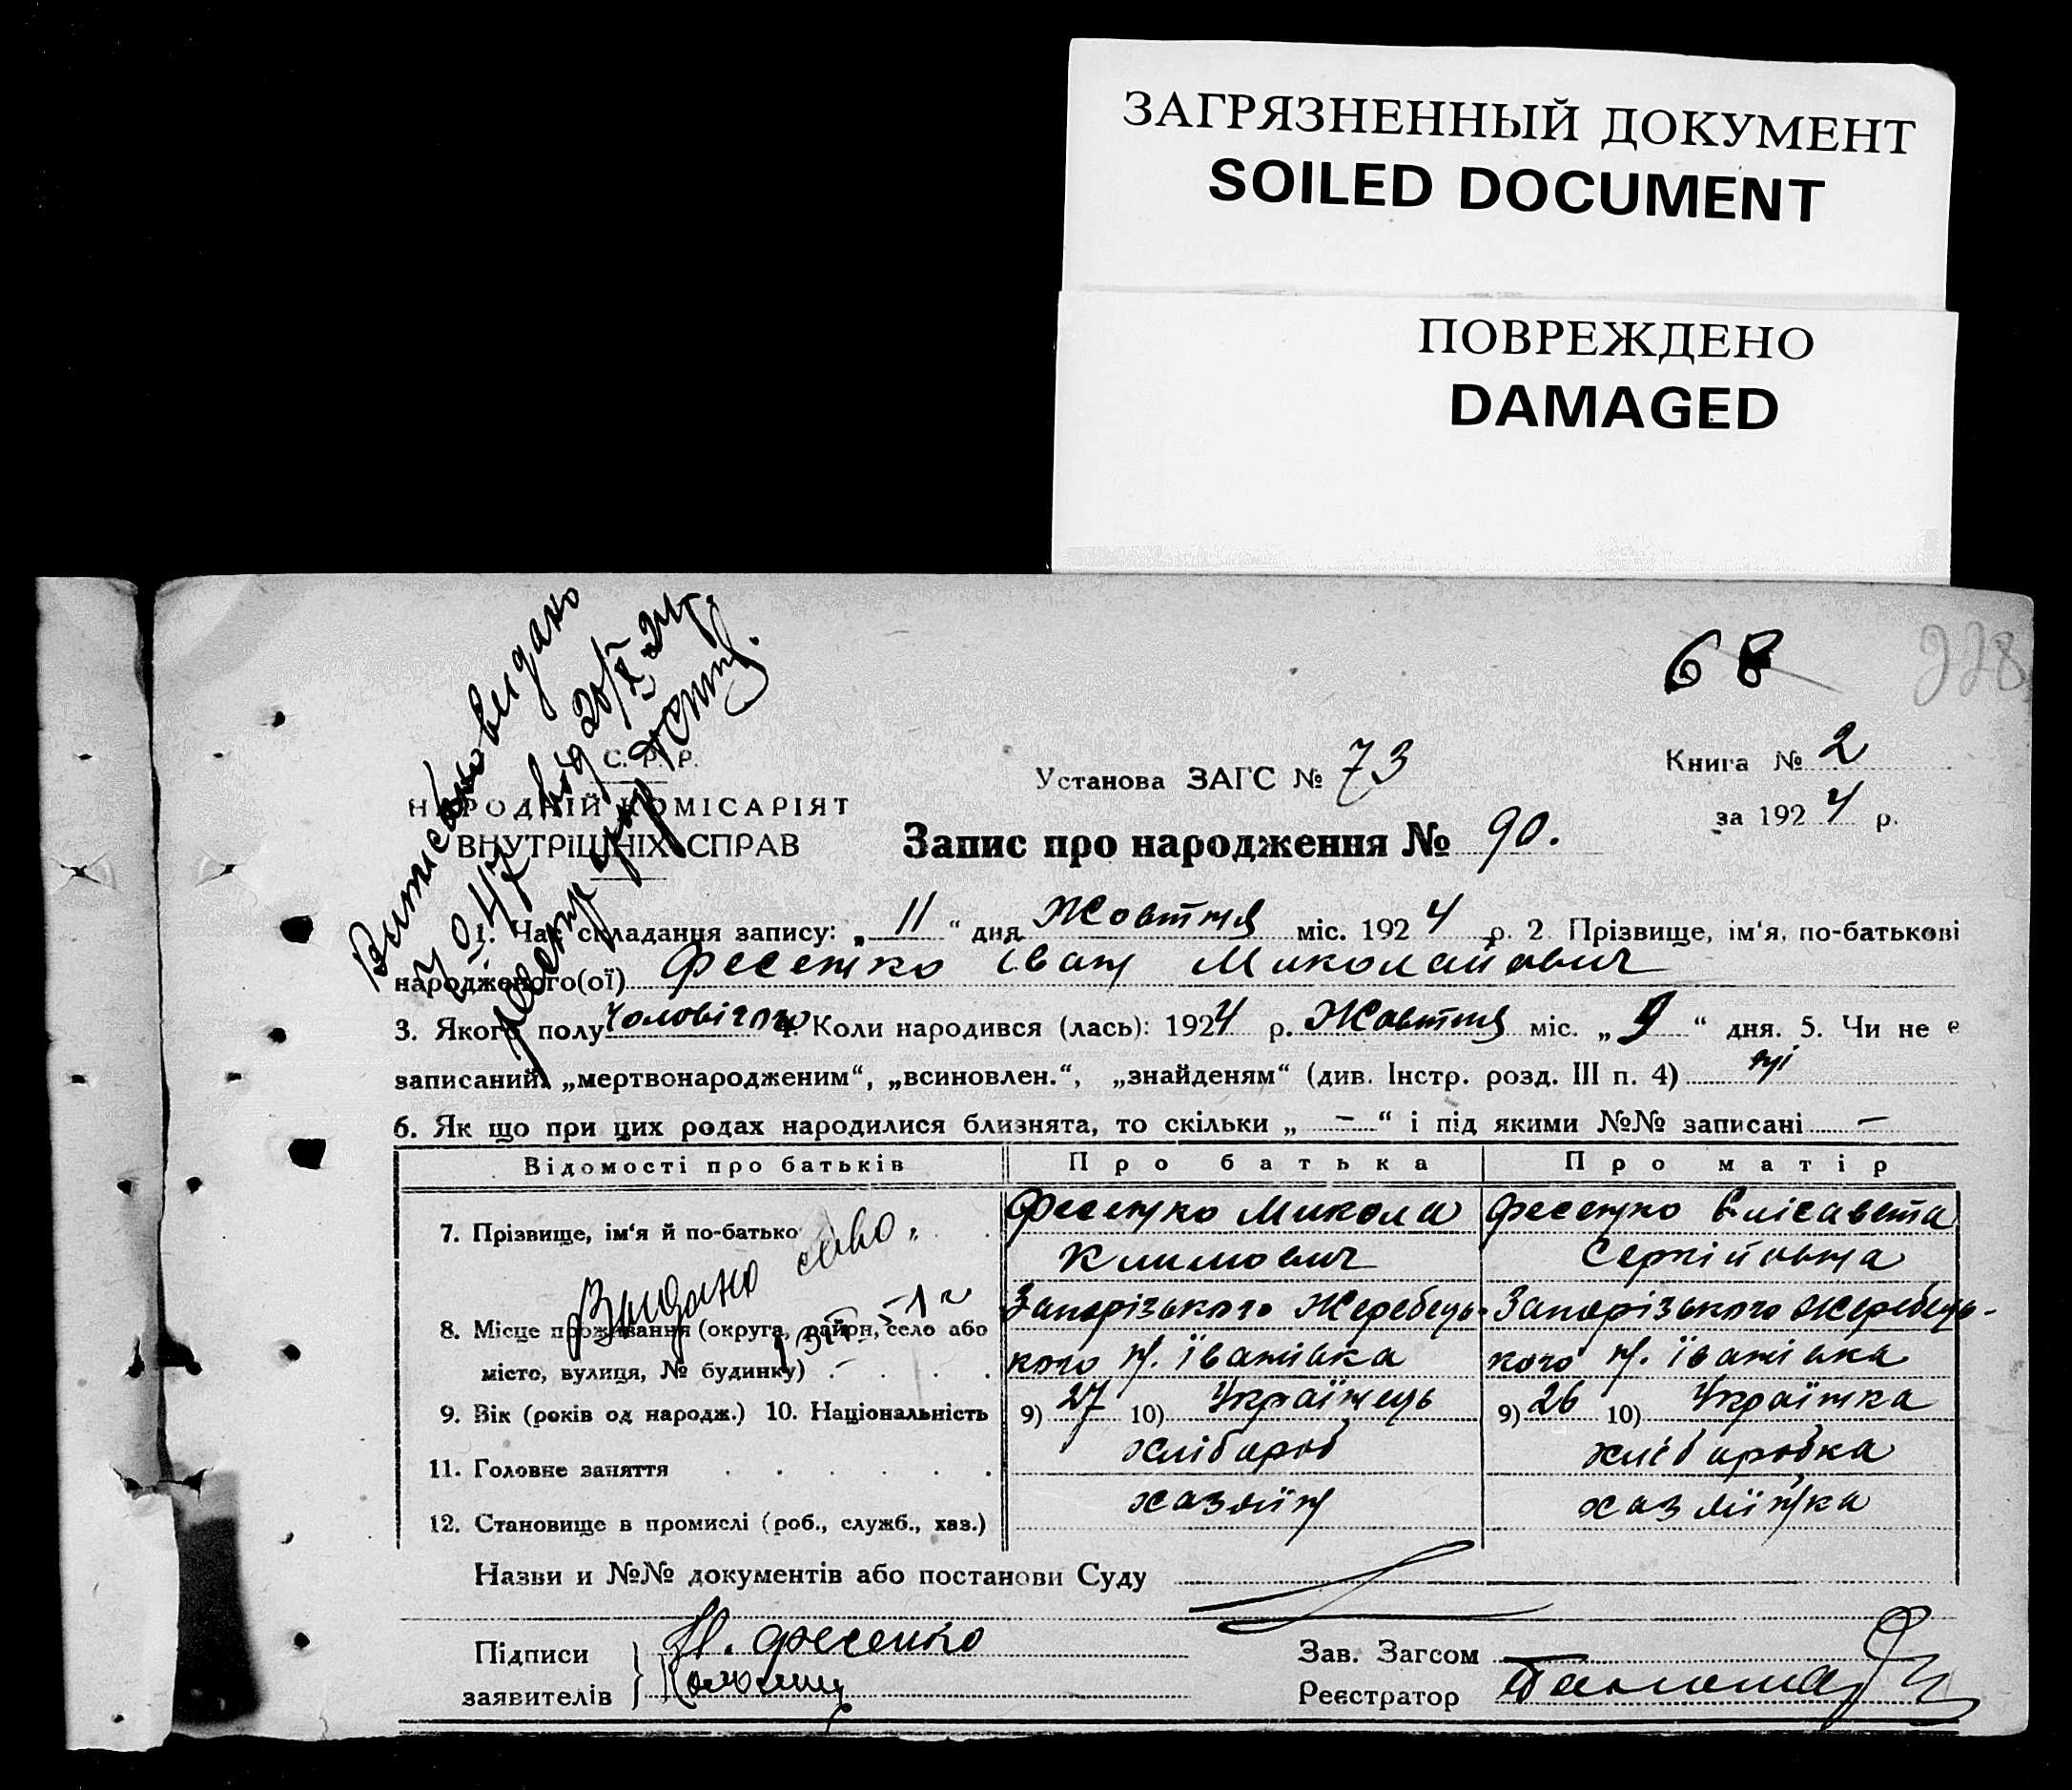 ЗАГРЯЗНЕННЫЙ ДОКУМЕНТ
SOILED DOCUMENT
ПОВРЕЖДЕНО
DAMAGED
68
228
С. Р. Р.
НАРОДНІЙ КОМІСАРІЯТ
ВНУТРІШНІХ СПРАВ
Установа ЗАГС № 73
Книга № 2
за 1924 р.
Запис про народження № 90.
1. Час складання запису: „11“ дня Жовтня міс. 1924 р. 2 Прізвище, ім‘я, по-батькові
народженого(ої) Фесенко Іван Миколайович
3. Якого полу чоловічого 4. Коли народився (лась): 1924 р. Жовтня міс. „9“ дня. 5. Чи не є
записаний „мертвонародженим“, „всиновлен.“, „знайденям“ (див. Інстр. розд. III п. 4) ні
6. Як що при цих родах народилися близнята, то скільки „ – “ і під якими №№ записані –
Відомості про батьків Про батька Про матір
7. Прізвище, ім‘я й по-батькові Фесенко Микола Фесенко Єлісавета
Климович Сергійовна
8. Місце проживання (округа, район, село або Запорізького Жеребець- Запорізького Жеребець-
місто, вулиця, № будинку) кого н. Іванівка кого н. Іванівка
9. Вік (років од народж.) 10. Національність 9) 27 10) Українець 9) 26 10) Українка
11. Головне заняття хлібороб хліборобка
12. Становище в промислі (роб., служб., хаз.) хазяїн хазяїнка
Назви и №№ документів або постанови Суду
Підписи Н. Фесенко
заявителів
Зав. Загсом
Реєстратор